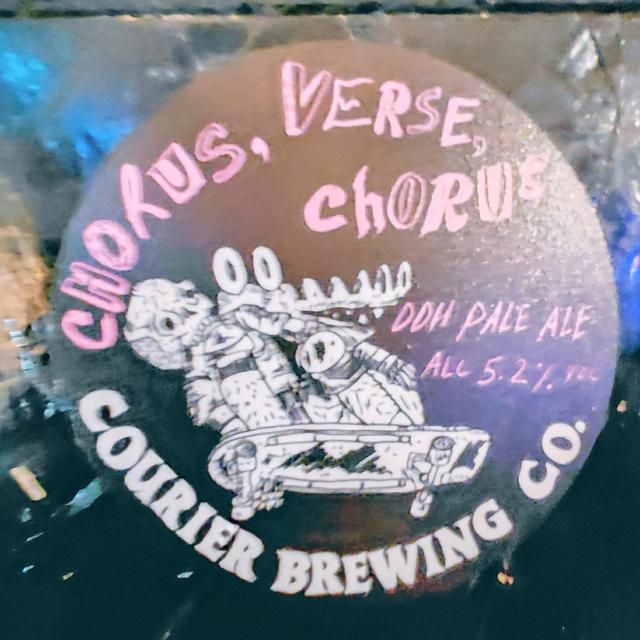 CHORUS, VERSE,
ChORUS
DDH PALE ALE
ALC 5.2%
COURIER BREWING CO.